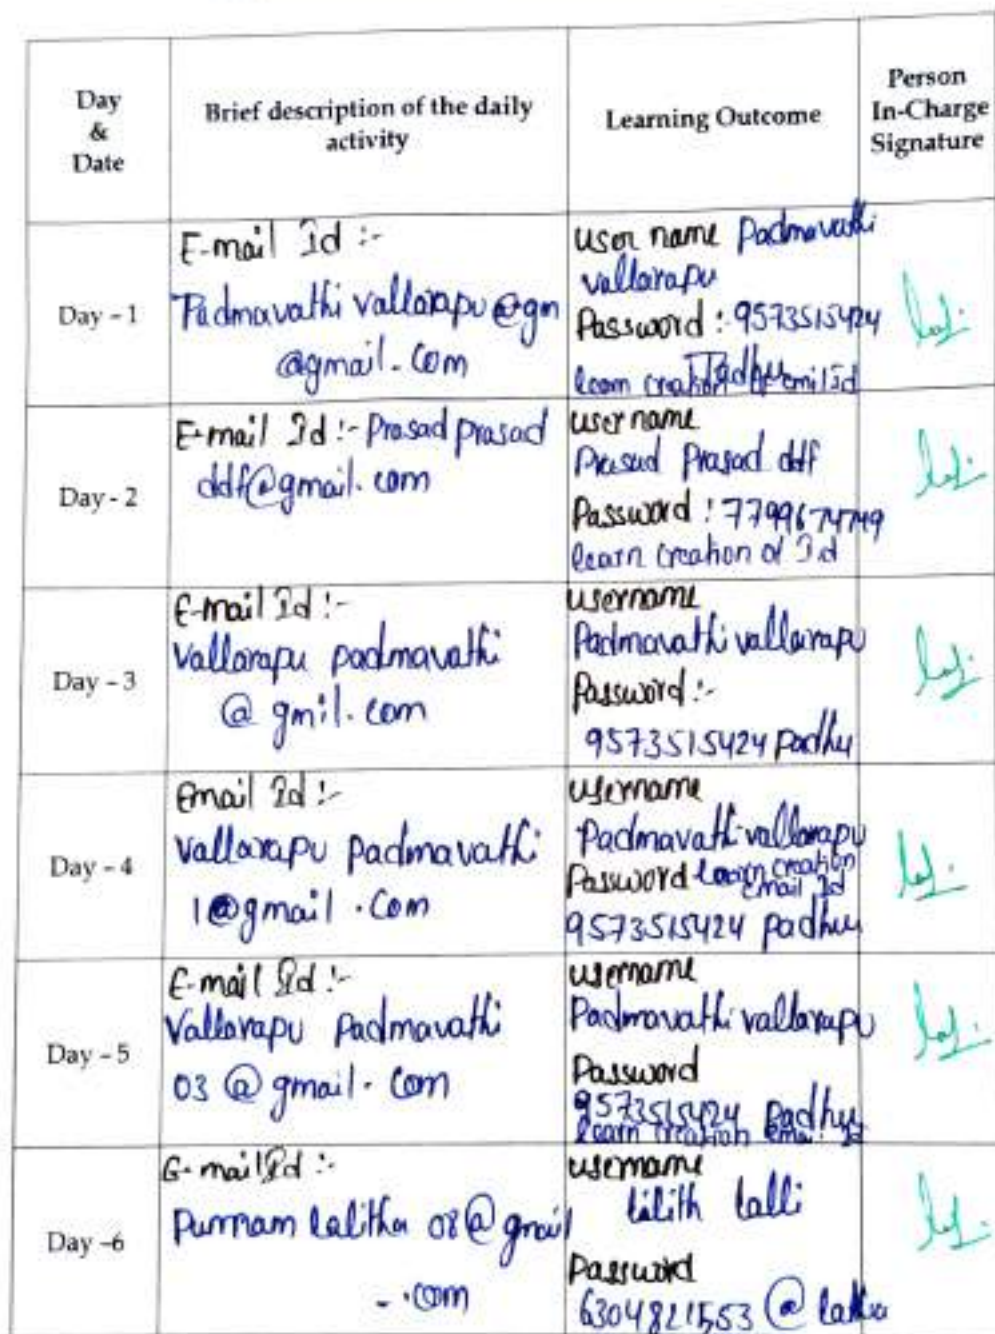 Day
&
Date
Brief description of the daily
activity
Learning Outcome
Person
In-Charge
Signature
Day – 1
E-mail Id :-
Padmavathi vallarapu @gm
@gmail.com
user name Padmavathi
vallarapu
Password :- 9573515424
Padhu
learn creation of email Id
Day - 2
E-mail Id :- Prasad prasad
ddf@gmail.com
user name
Prasad Prasad ddf
Password :
learn creation of Id
Day – 3
E-mail Id :-
Vallarapu padmavathi
@ gmil.com
username
Padmavathi vallarapu
Password :-
9573515424 Padhu
Day – 4
Email Id :-
Vallarapu Padmavathi
1@gmail.com
username
Padmavathi vallarapu
Password learn creation
Email Id
9573515424 padhu
Day – 5
E-mail Id :-
Vallarapu Padmavathi
03 @ gmail.com
username
Padmavathi vallarapu
Password
9573515424 Padhu
learn creation Email Id
Day –6
E-mail Id :-
lalitha 08@ gmail
.com
username
lalli
Password
6304821553 @